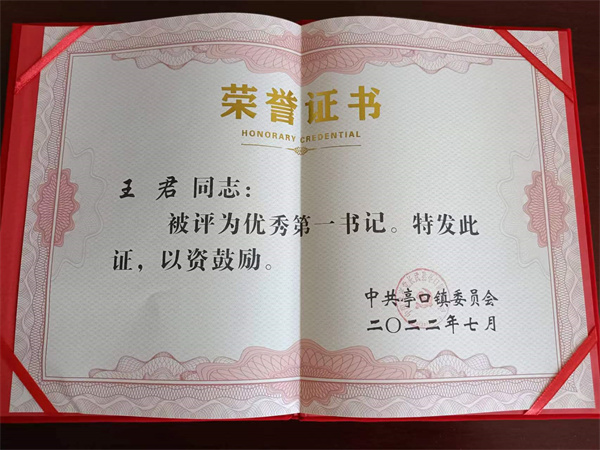 荣誉证书
HONORARY CREDENTIAL
王 君 同志：
被评为优秀第一书记。特发此
证，以资鼓励。
中共亭口镇委员会
二〇二二年七月